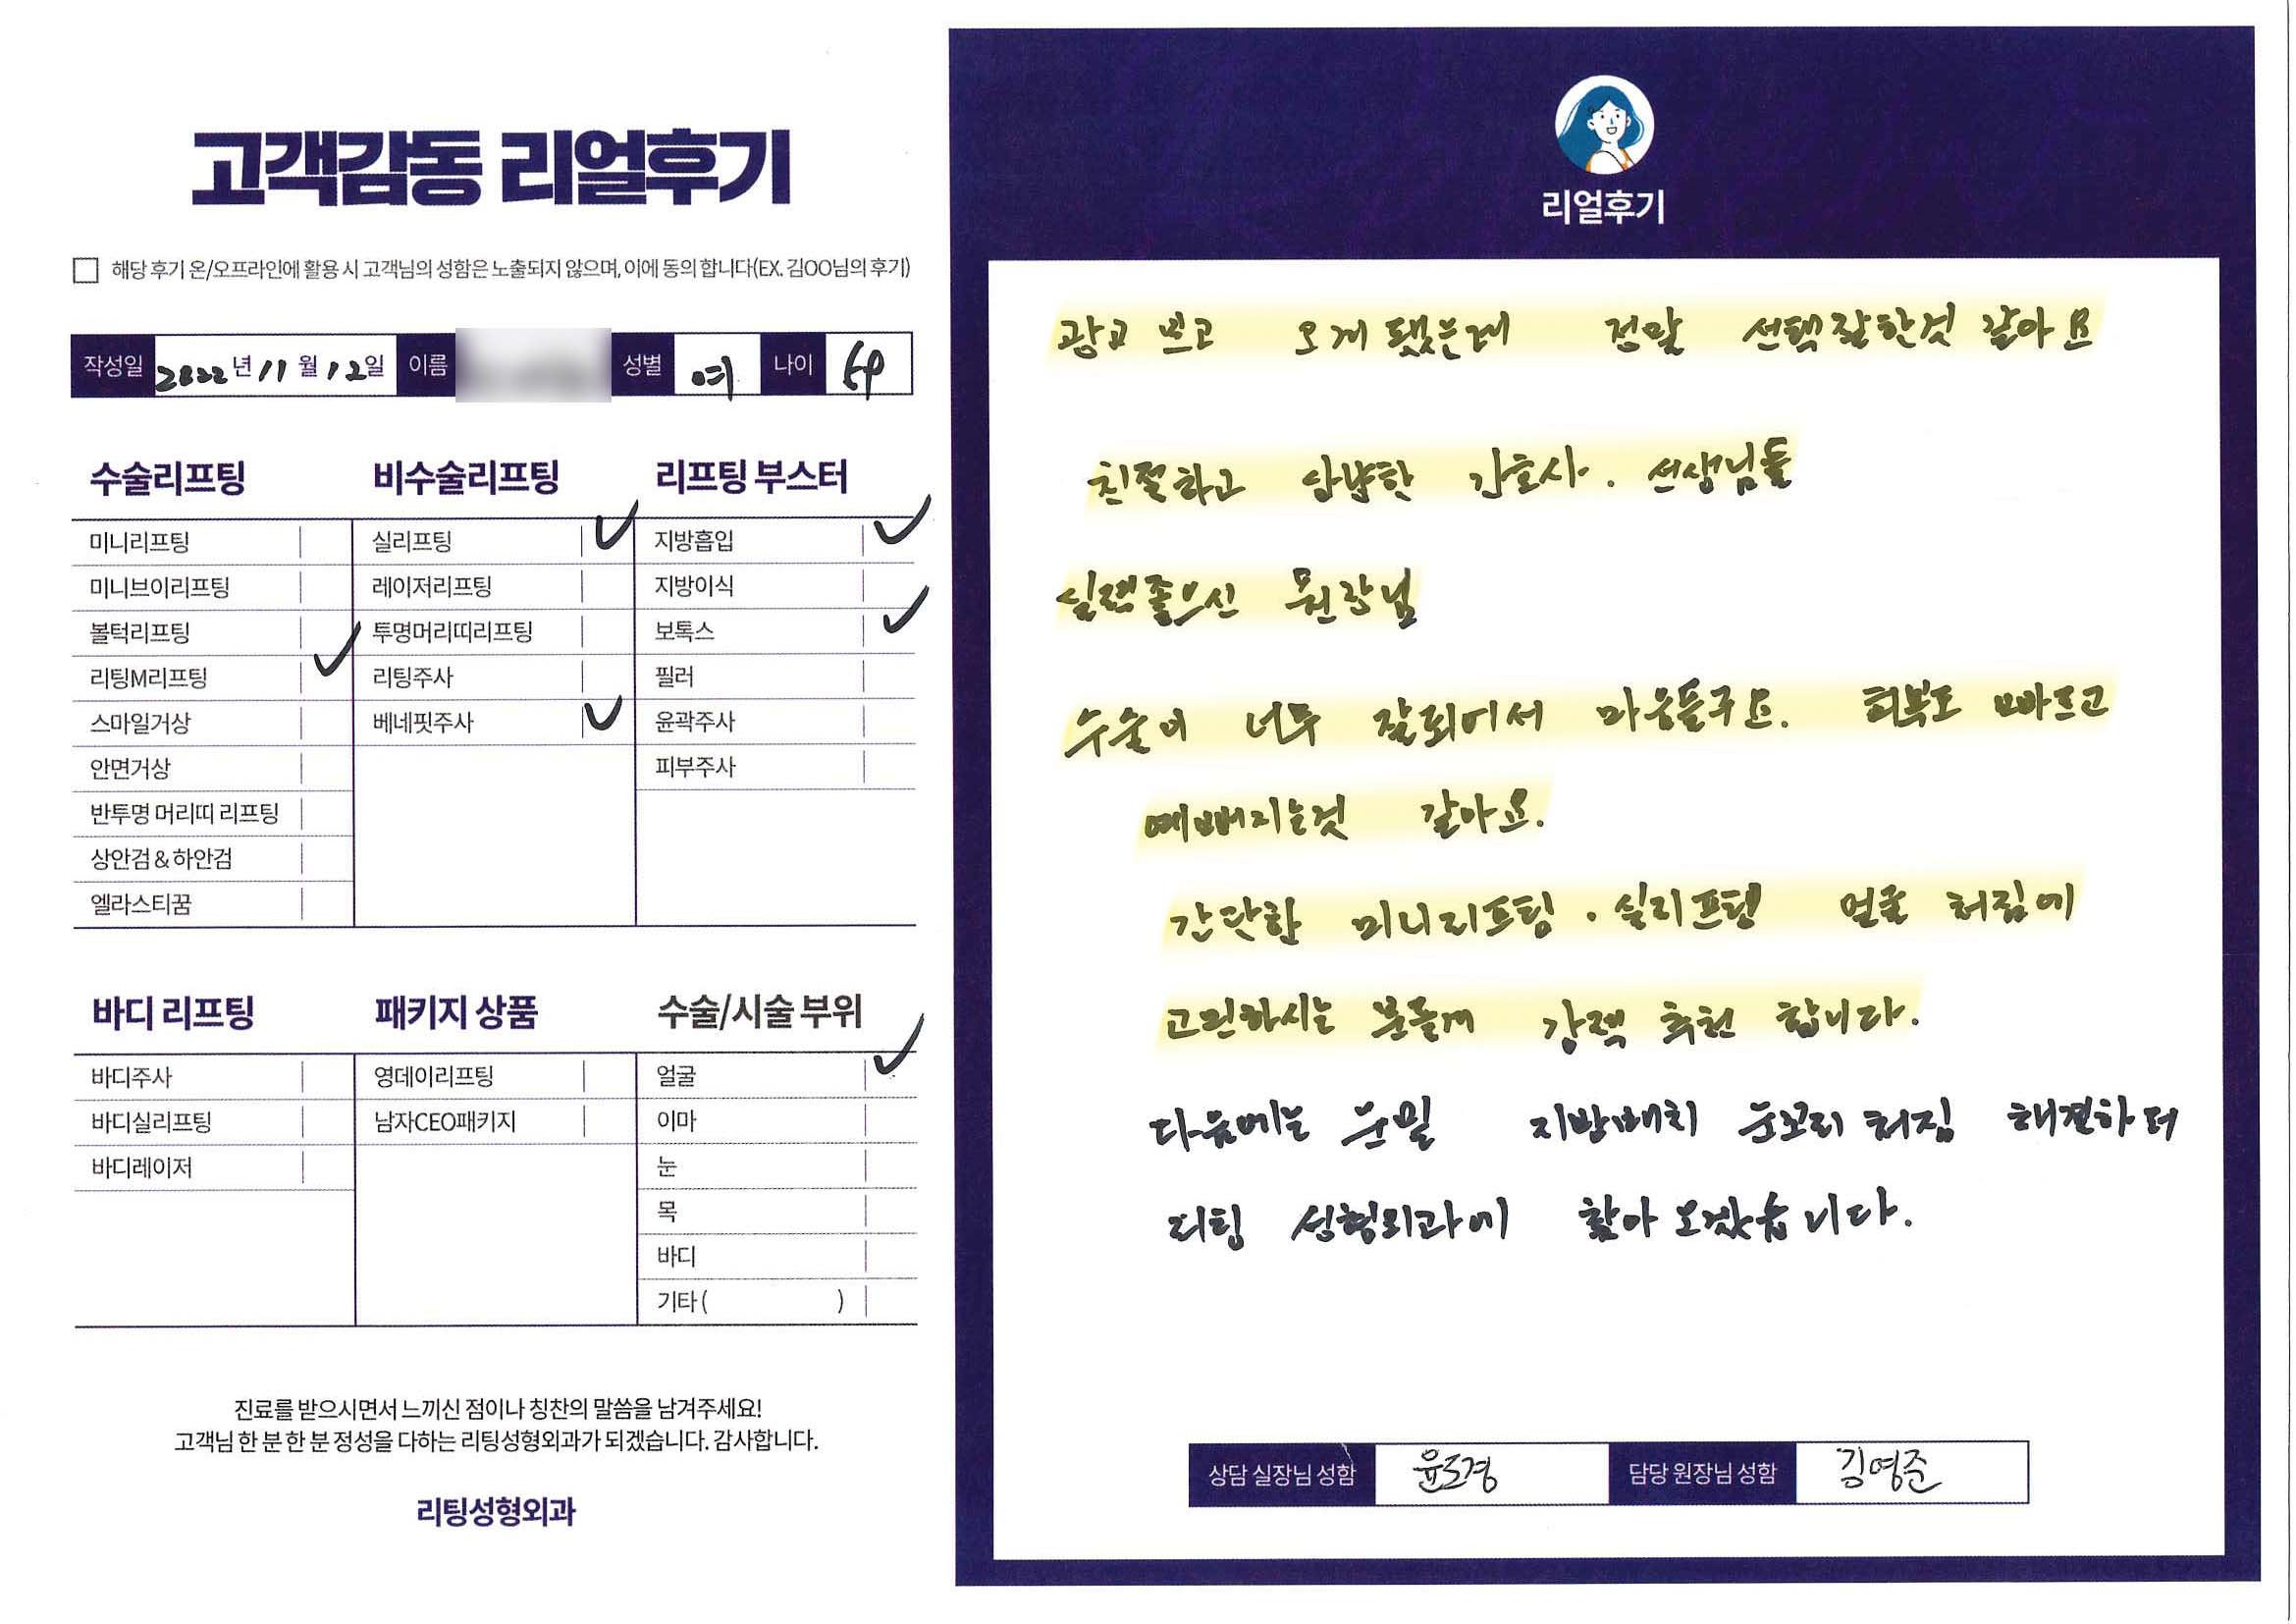 고객감동 리얼후기
해당 후기 온/오프라인에 활용 시 고객님의 성함은 노출되지 않으며, 이에 동의 합니다(EX. 김OO님의 후기)
작성일 2022년 11월 12일 이름 성별 여 나이
수술리프팅
미니리프팅
미니브이리프팅
볼턱리프팅
리팅M리프팅
스마일거상
안면거상
반투명 머리띠 리프팅
상안검 & 하안검
엘라스티꿈
비수술리프팅
실리프팅
레이저리프팅
투명머리띠리프팅
리팅주사
베네핏주사
리프팅 부스터
지방흡입
지방이식
보톡스
필러
윤곽주사
피부주사
바디 리프팅
바디주사
바디실리프팅
바디레이저
패키지 상품
영데이리프팅
남자CEO패키지
수술/시술 부위
얼굴
이마
눈
목
바디
기타 ( )
진료를 받으시면서 느끼신 점이나 칭찬의 말씀을 남겨주세요!
고객님 한 분 한 분 정성을 다하는 리팅성형외과가 되겠습니다. 감사합니다.
리팅성형외과
리얼후기
광고 보고 오게 됐는데 정말 선택잘한것 같아요
친절하고 상냥한 간호사. 선생님들
실력좋으신 원장님
수술이 너무 잘되어서 마음들구요. 회복도 빠르고
예뻐지는것 같아요.
간단한 미니리프팅. 실리프팅 얼굴 처짐에
고민하시는 분들께 강력 추천 합니다.
다음에는 눈밑 지방배치 눈꼬리 처짐 해결하러
리팅 성형외과에 찾아 오겠습니다.
상담 실장님 성함 윤도경 담당 원장님 성함 김영준